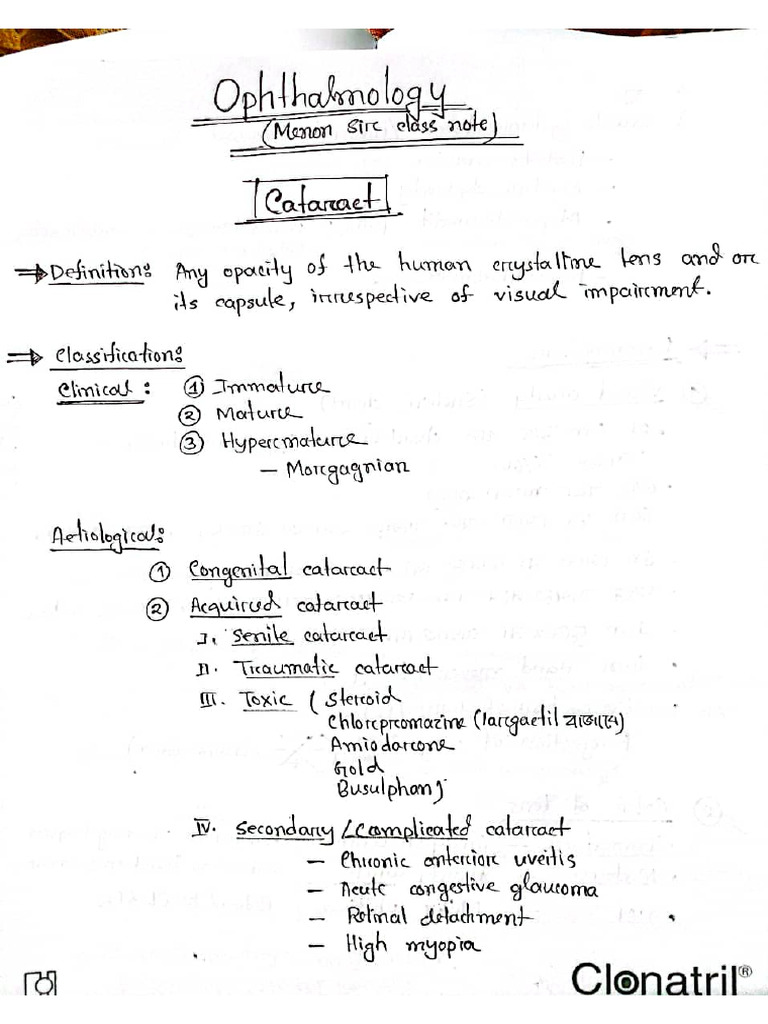 Ophthalmology
(Menon Sir class note)
Cataract
⇒ Definition: Any opacity of the human crystalline lens and or
its capsule, irrespective of visual impairment.
⇒ Classification:
Clinical: ① Immature
② Mature
③ Hypermature
– Morgagnian
Aetiological:
① Congenital cataract
② Acquired cataract
I. Senile cataract
II. Traumatic cataract
III. Toxic (Steroid
Chlorpromazine (largactil বাজারে)
Amiodarone
Gold
Busulphan)
IV. Secondary/Complicated cataract
– Chronic anterior uveitis
– Acute congestive glaucoma
– Retinal detachment
– High myopia
Clonatril®